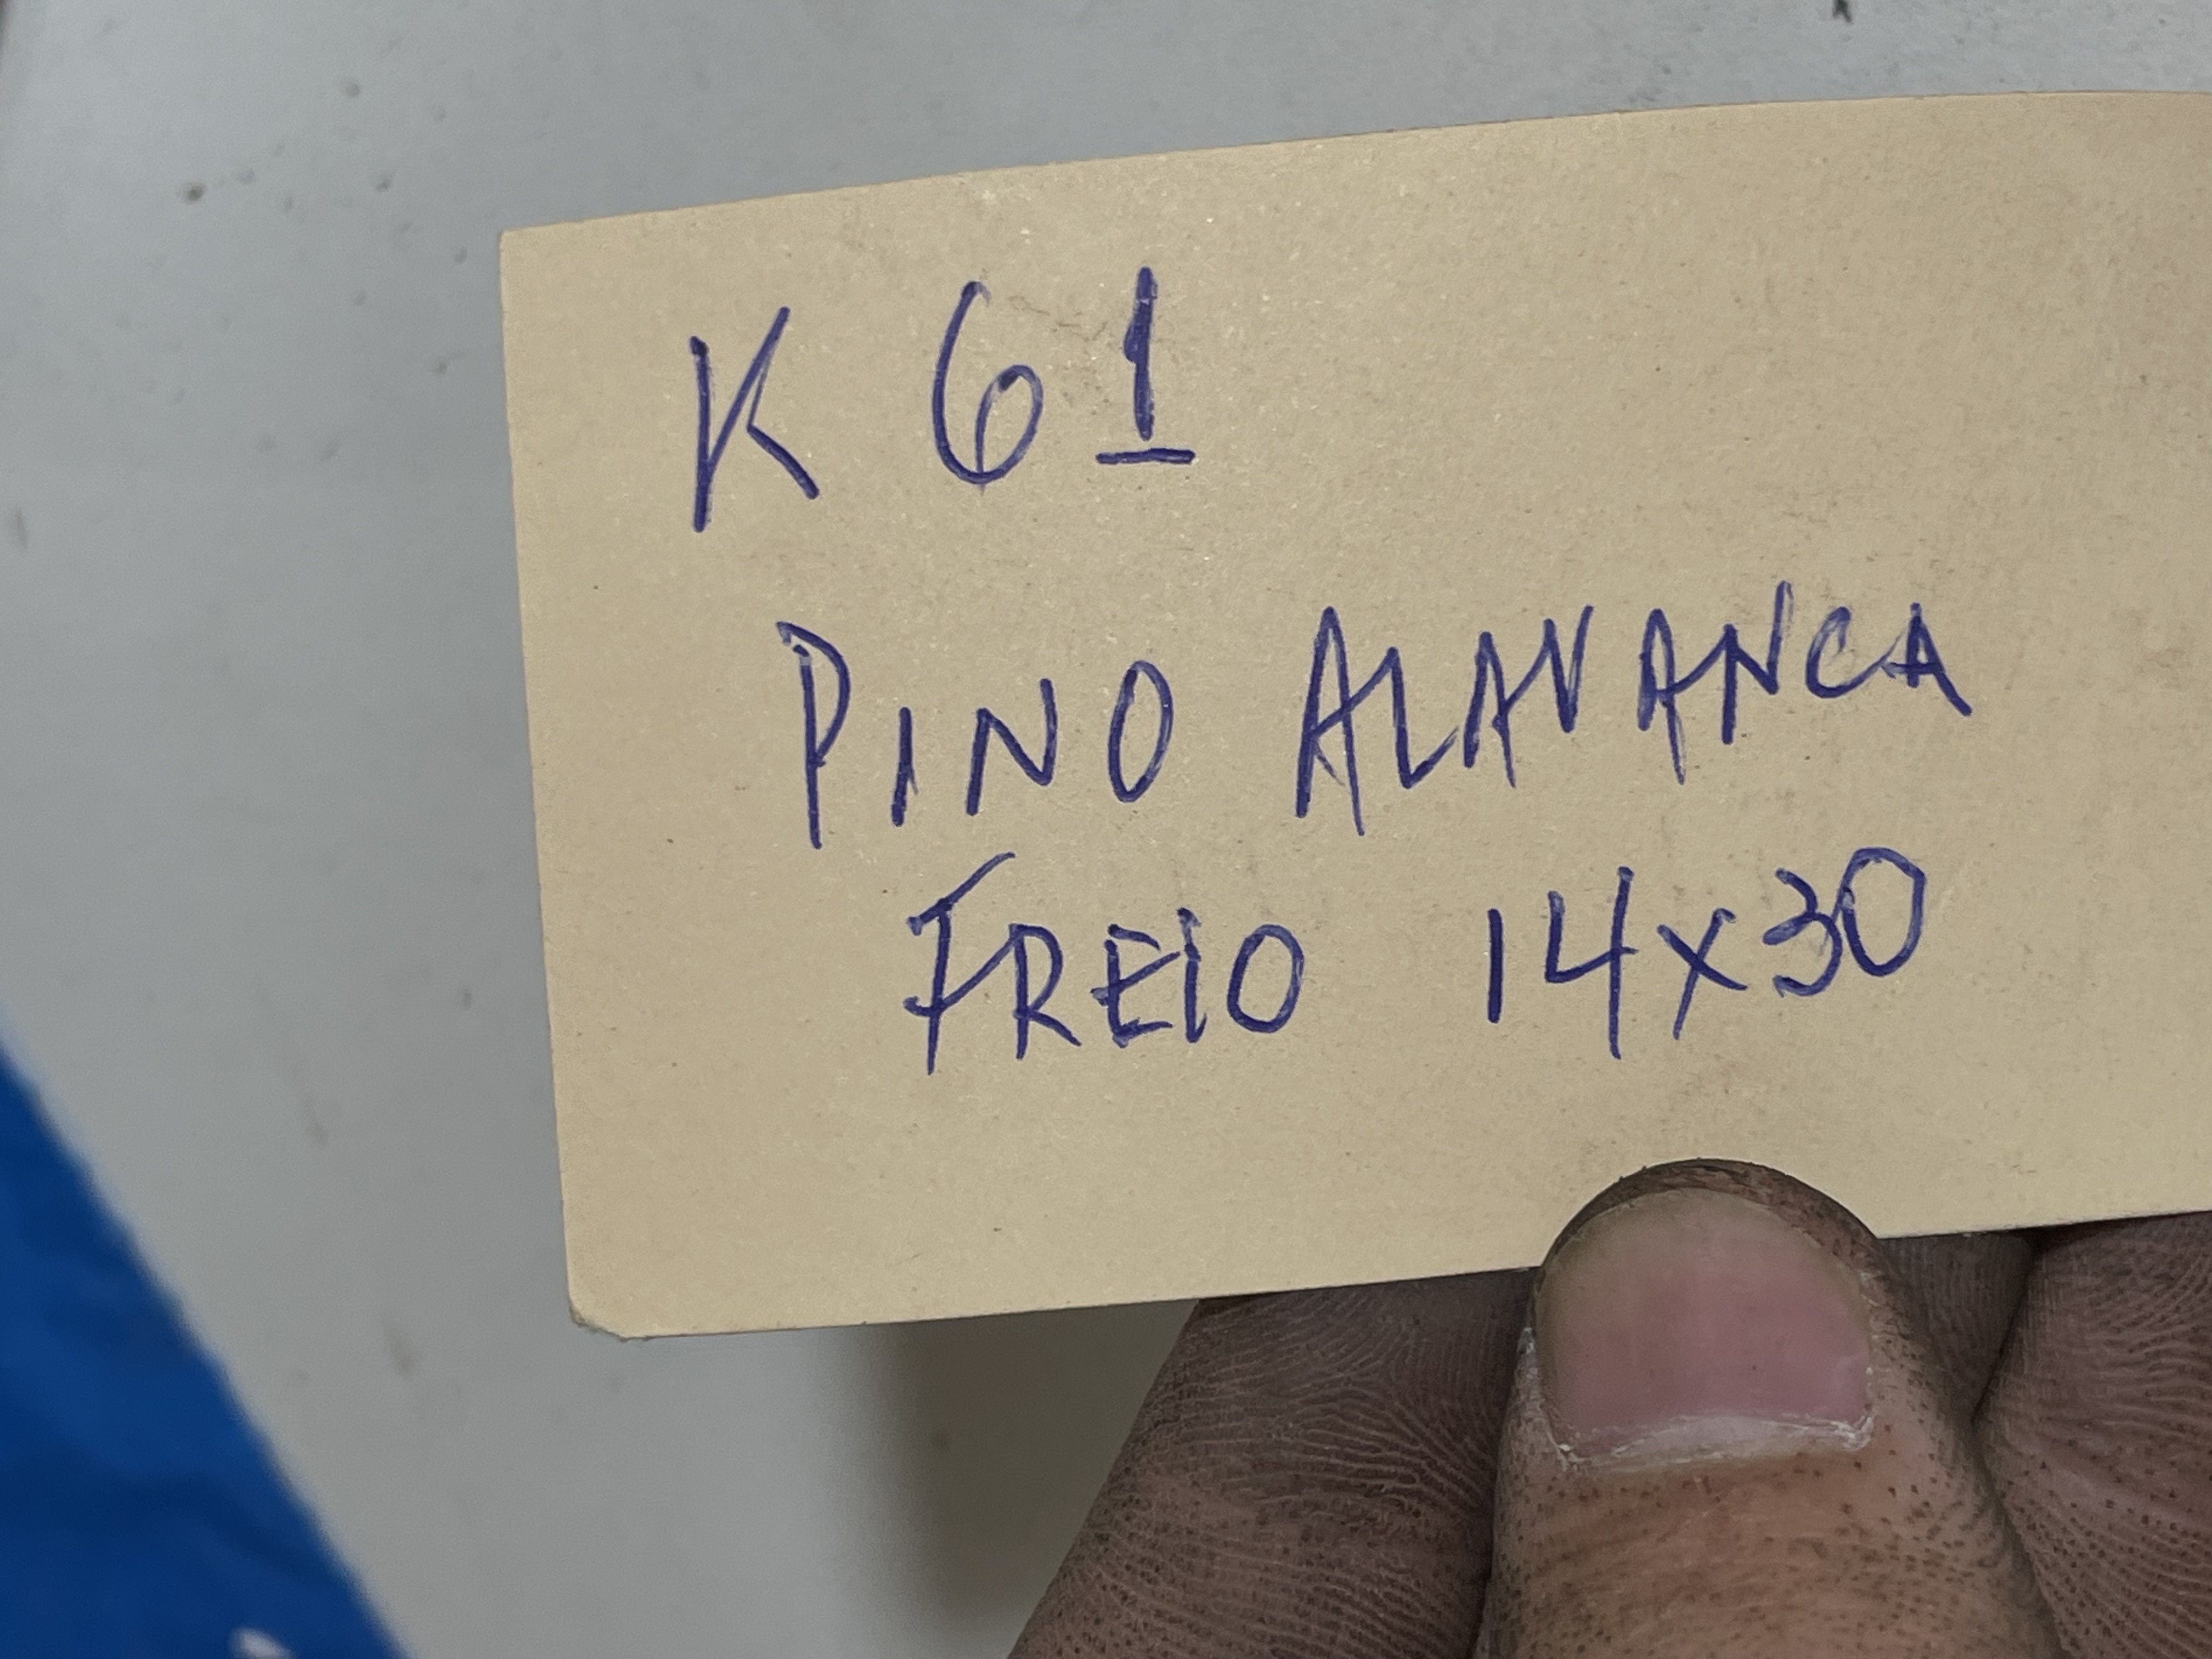 K 61
PINO ALAVANCA
FREIO 14X30